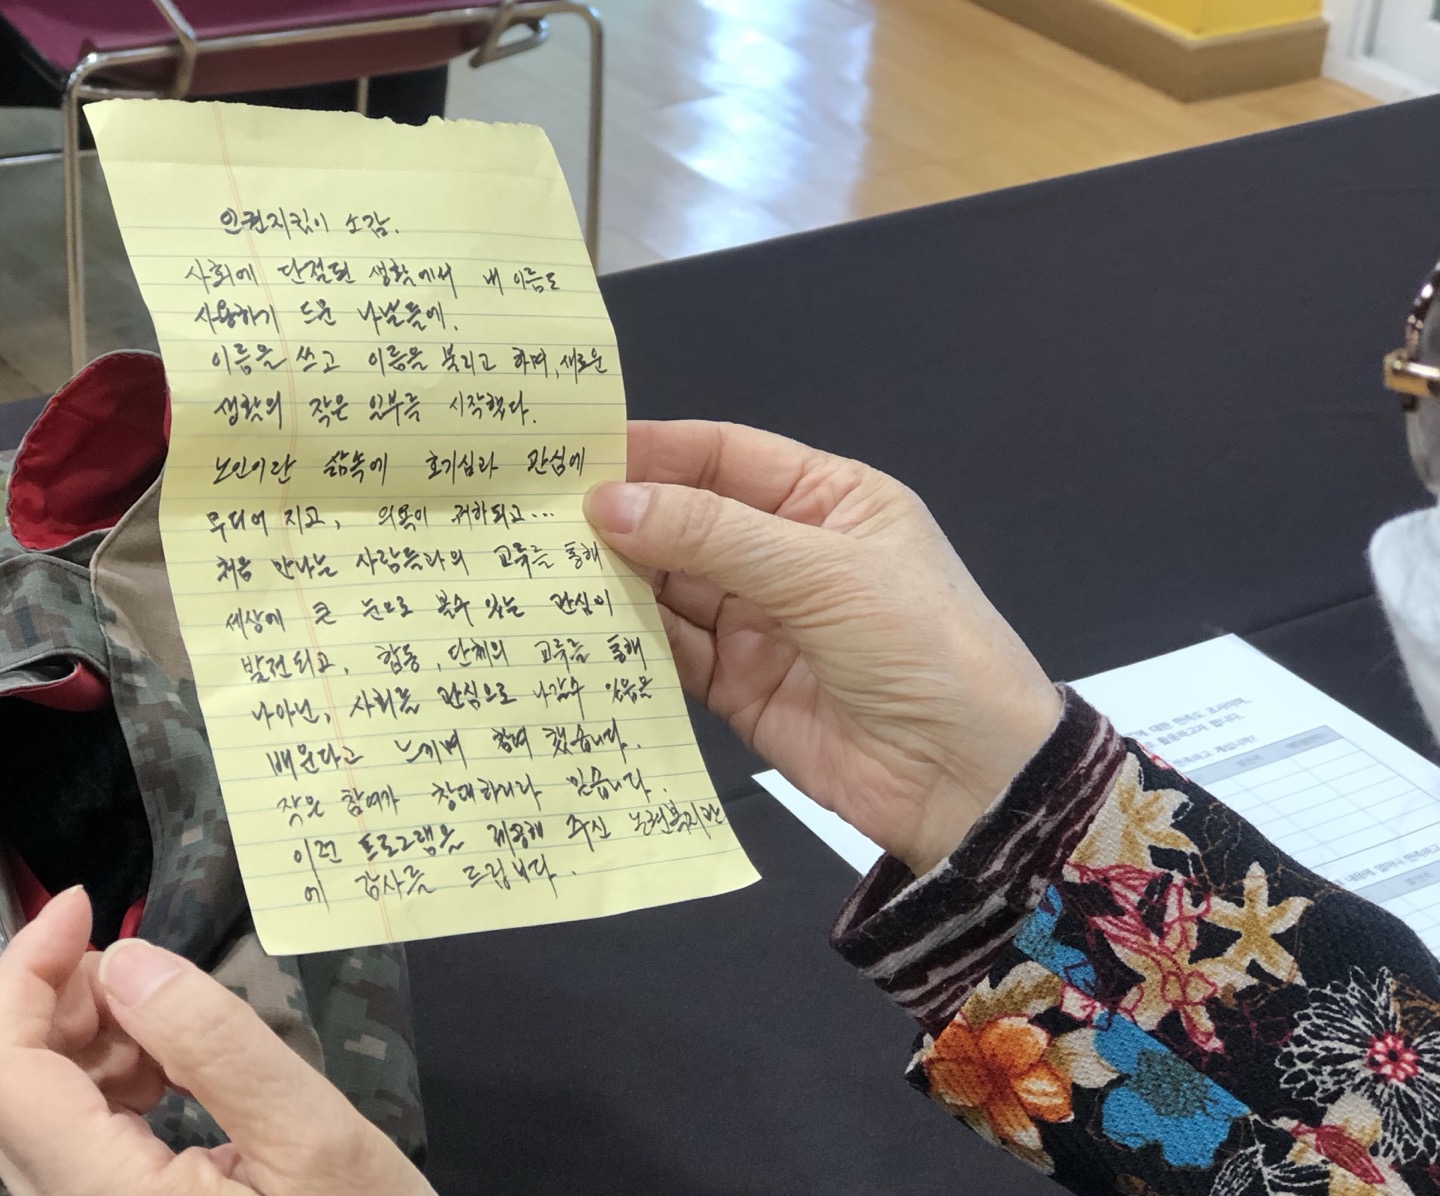 인권지킴이 소감.
사회에 단절된 생활에서 내 이름도
사용하기 드문 나날들에.
이름을 쓰고 이름을 불리고 하며, 새로운
생활의 작은 일부를 시작했다.
노인이란 삶속에 호기심과 관심에
무디어 지고, 의욕이 저하되고...
처음 만나는 사람들과의 교류를 통해
세상에 큰 눈으로 볼수 있는 관심이
발전되고, 합동, 단체의 교류를 통해
나아닌, 사회를 관심으로 나갈수 있음을
배운다고 느끼며 참여 했습니다.
작은 참여가 창대하리라 믿습니다.
이런 프로그램을 제공해 주신 노원복지관
에 감사를 드립니다.
에 대한 만족도 조사이며,
활용하고자 합니다.
하고 계십니까?